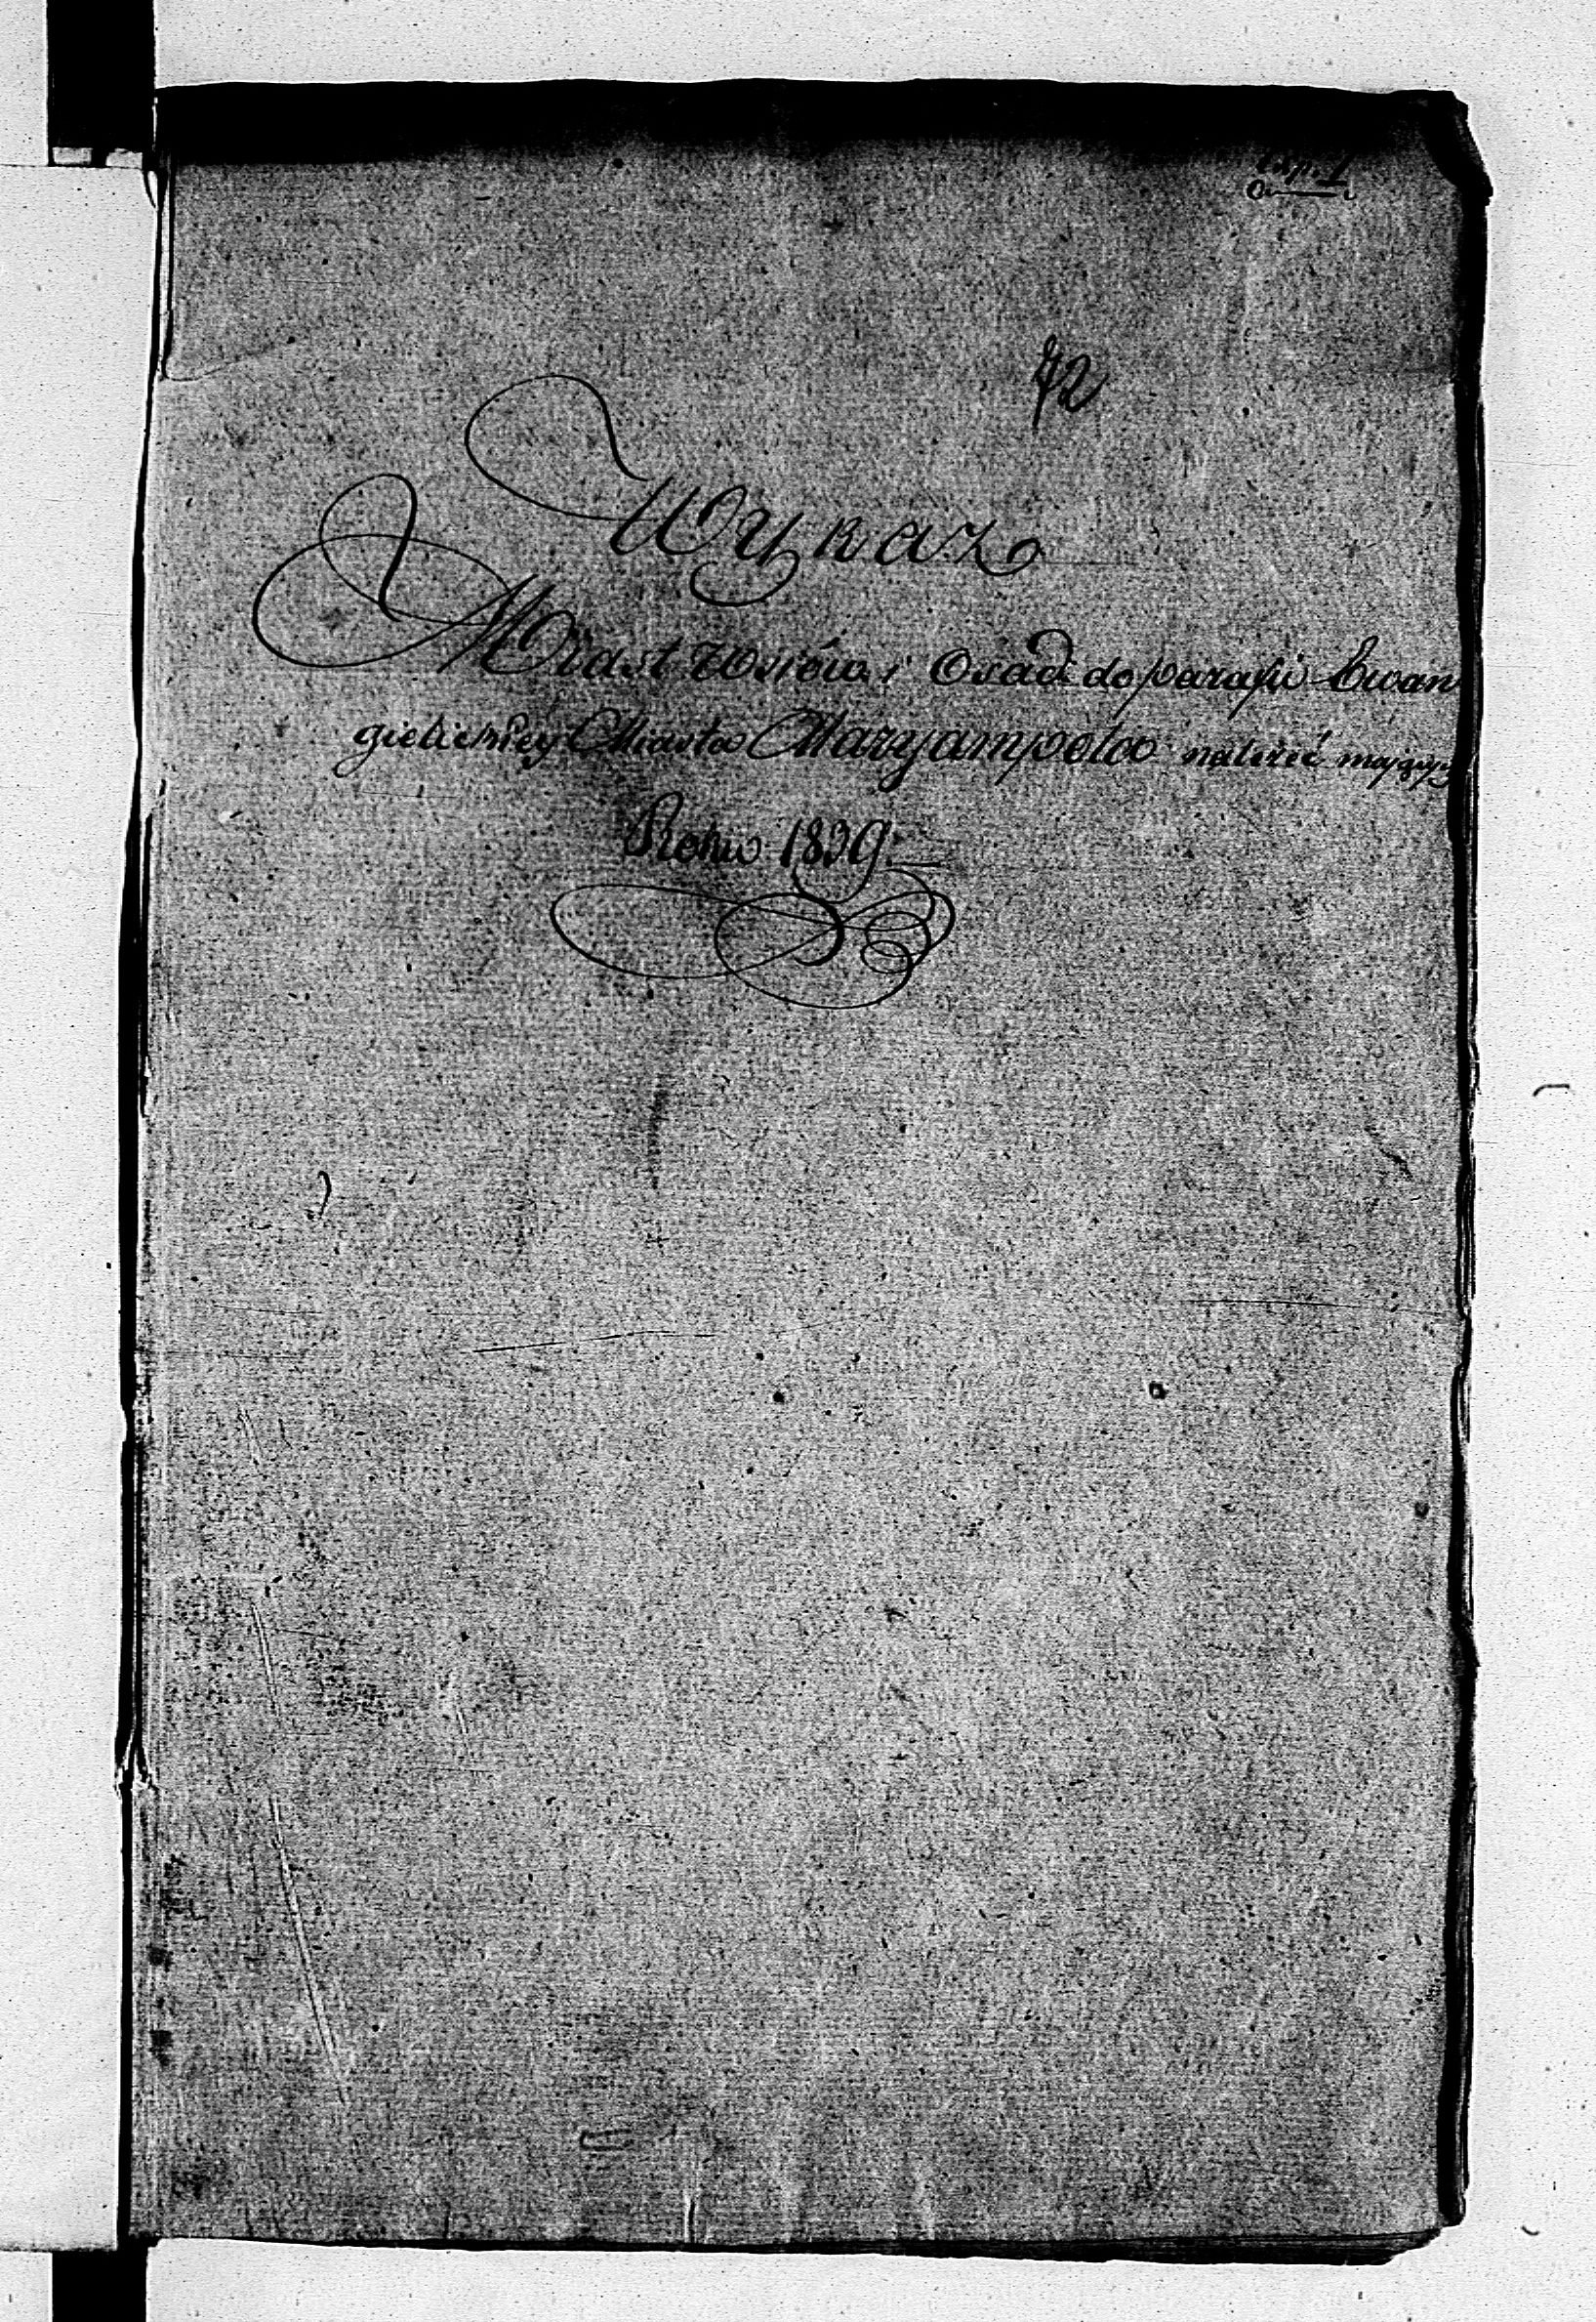 72
Wykaz
Miast Wsiów i Osad do parafii Ewan
gielickiey Miasta Maryampola należeć mających
Roku 1839.